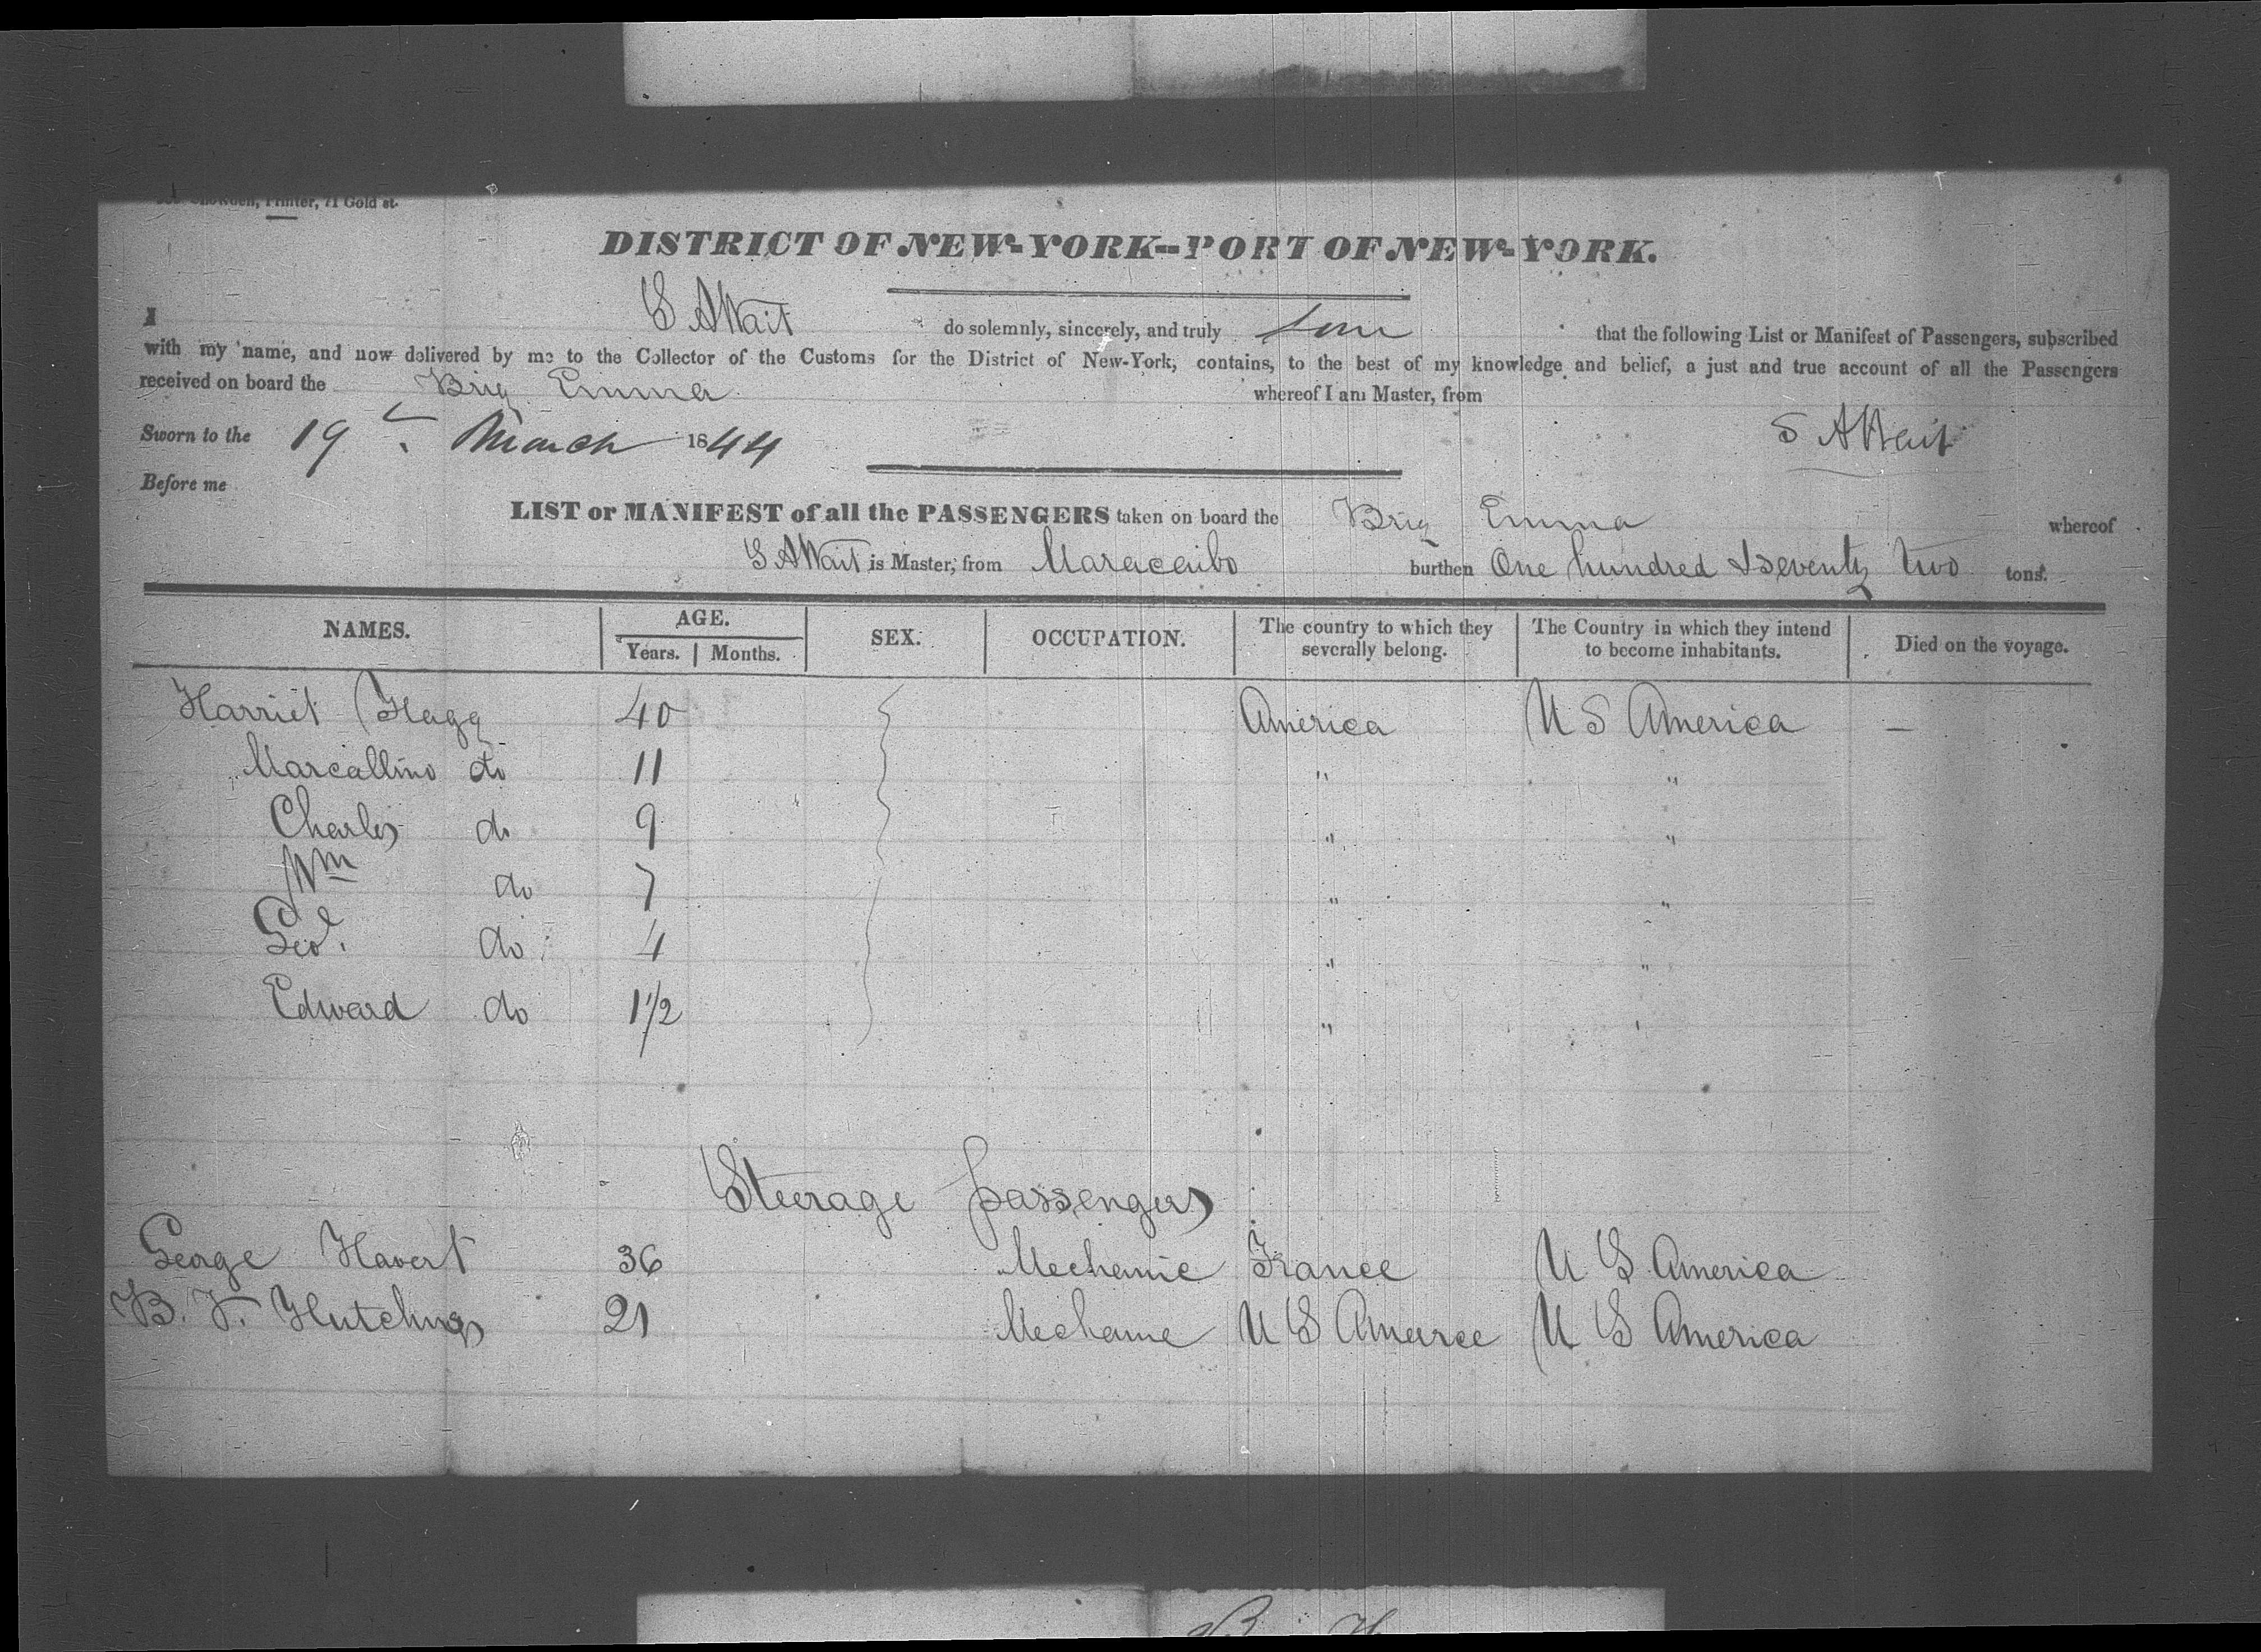 Snowden, Printer, 71 Gold st.
DISTRICT OF NEW-YORK--PORT OF NEW-YORK.
I S A Wait do solemnly, sincerely, and truly that the following List or Manifest of Passengers, subscribed
with my name, and now delivered by me to the Collector of the Customs for the District of New-York, contains, to the best of my knowledge and belief, a just and true account of all the Passengers
received on board the Brig Emma whereof I am Master, from
Sworn to the 19th March 1844 S A Wait
Before me
LIST or MANIFEST of all the PASSENGERS taken on board the Brig Emma whereof
S A Wait is Master, from Maracaibo burthen One hundred & seventy two tons.
NAMES. AGE. Years. Months. SEX. OCCUPATION. The country to which they severally belong. The Country in which they intend to become inhabitants. Died on the voyage.
Harriet Flagg 40 America U S America —
Marcallino do 11 " "
Charles do 9 " "
Wm do 7 " "
Geo. do 4 " "
Edward do 1 1/2 " "
Steerage passengers
George Havert 36 Mechanic France U S America
B. F. Hutchings 21 Mechanic U S America U S America